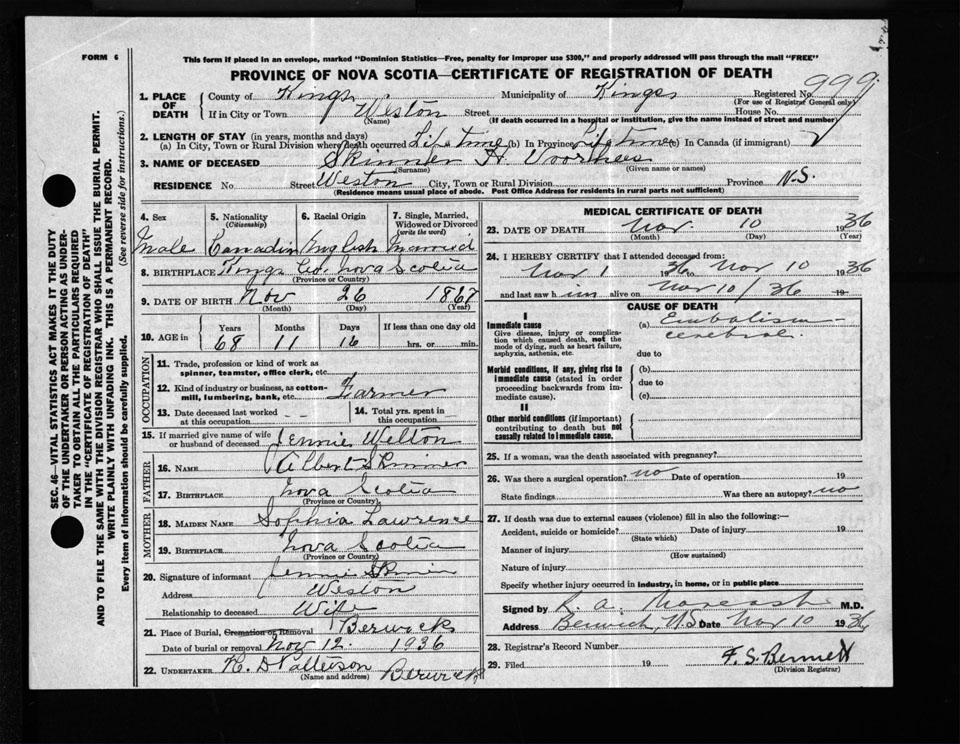 FORM 6
This form if placed in an envelope, marked "Dominion Statistics—Free, penalty for improper use $300," and properly addressed will pass through the mail "FREE"
PROVINCE OF NOVA SCOTIA—CERTIFICATE OF REGISTRATION OF DEATH
999
1. PLACE OF DEATH
County of Kings Municipality of Kings Registered No.
(For use of Registrar General only)
If in City or Town Weston Street House No.
(Name) (If death occurred in a hospital or institution, give the name instead of street and number)
2. LENGTH OF STAY (in years, months and days)
(a) In City, Town or Rural Division where death occurred Life time (b) In Province Life time (c) In Canada (if immigrant)
3. NAME OF DECEASED Skinner H. Voorhees
(Surname) (Given name or names)
RESIDENCE No Street Weston City, Town or Rural Division Province N.S.
(Residence means usual place of abode. Post Office Address for residents in rural parts not sufficient)
4. Sex 5. Nationality (Citizenship) 6. Racial Origin 7. Single, Married, Widowed or Divorced (write the word)
Male Canadian English Married
8. BIRTHPLACE Kings Co. Nova Scotia
(Province or Country)
9. DATE OF BIRTH Nov 26 1867
(Month) (Day) (Year)
10. AGE in Years Months Days If less than one day old
68 11 16 hrs. or min.
OCCUPATION
11. Trade, profession or kind of work as spinner, teamster, office clerk, etc.
12. Kind of industry or business, as cotton-mill, lumbering, bank, etc. Farmer
13. Date deceased last worked at this occupation 14. Total yrs. spent in this occupation
15. If married give name of wife or husband of deceased Jennie Welton
FATHER
16. NAME Albert Skinner
17. BIRTHPLACE Nova Scotia
(Province or Country)
MOTHER
18. MAIDEN NAME Sophia Lawrence
19. BIRTHPLACE Nova Scotia
(Province or Country)
20. Signature of informant Jennie Skinner
Address Weston
Relationship to deceased Wife
21. Place of Burial, Cremation or Removal Berwick
Date of burial or removal Nov 12. 1936
22. UNDERTAKER R. D Patterson Berwick
(Name and address)
MEDICAL CERTIFICATE OF DEATH
23. DATE OF DEATH Nov. 10 1936
(Month) (Day) (Year)
24. I HEREBY CERTIFY that I attended deceased from:
Nov 1 1936 to Nov 10 1936
and last saw him alive on Nov 10/36 19
CAUSE OF DEATH
I
Immediate cause
Give disease, injury or complication which caused death, not the mode of dying, such as heart failure, asphyxia, asthenia, etc.
(a) Embolism— cerebral
due to
Morbid conditions, if any, giving rise to immediate cause (stated in order proceeding backwards from immediate cause).
(b)
due to
(c)
II
Other morbid conditions (if important) contributing to death but not causally related to immediate cause.
25. If a woman, was the death associated with pregnancy?
26. Was there a surgical operation? no Date of operation 19
State findings Was there an autopsy? no
27. If death was due to external causes (violence) fill in also the following:—
Accident, suicide or homicide? Date of injury 19
(State which)
Manner of injury
(How sustained)
Nature of injury
Specify whether injury occurred in industry, in home, or in public place
Signed by R. A. M.D.
Address Berwick, N S Date Nov 10 1936
28. Registrar's Record Number
29. Filed 19 F. S. Bennett
(Division Registrar)
SEC. 46—VITAL STATISTICS ACT MAKES IT THE DUTY
OF THE UNDERTAKER OR PERSON ACTING AS UNDER-
TAKER TO OBTAIN ALL THE PARTICULARS REQUIRED
IN THE "CERTIFICATE OF REGISTRATION OF DEATH"
AND TO FILE THE SAME WITH THE DIVISION REGISTRAR WHO SHALL ISSUE THE BURIAL PERMIT.
WRITE PLAINLY WITH UNFADING INK. THIS IS A PERMANENT RECORD.
Every item of information should be carefully supplied. (See reverse side for instructions.)